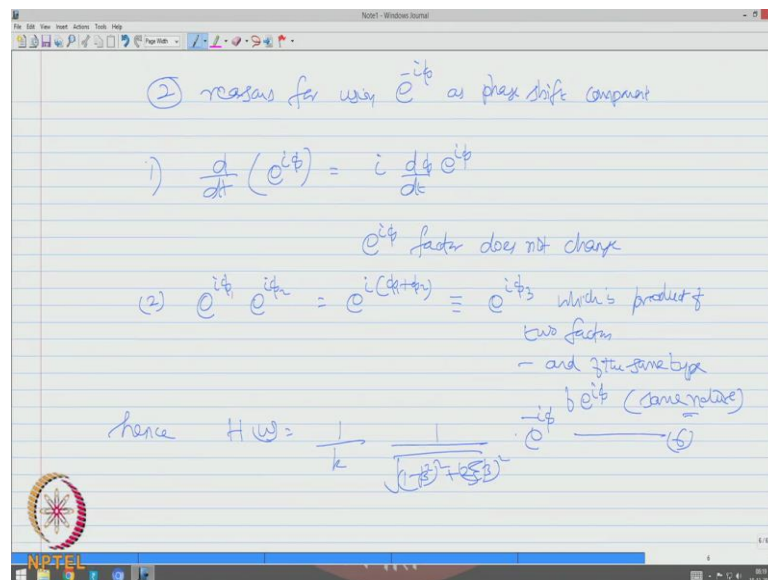 Note1 - Windows Journal
File Edit View Insert Actions Tools Help
Page Width
② reasons for using e^{-iφ} as phase shift component
1) d/dt (e^{iφ}) = i dφ/dt e^{iφ}
e^{iφ} factor does not change
(2) e^{iφ1} e^{iφ2} = e^{i(φ1+φ2)} ≡ e^{iφ3} which is product of
two factor
- and of the same type
b e^{iφ} (same nature)
hence H(ω) = 1/k 1/√((1-β²)²+(2ξβ)²) . e^{-iφ} —— (6)
NPTEL
6/6
6